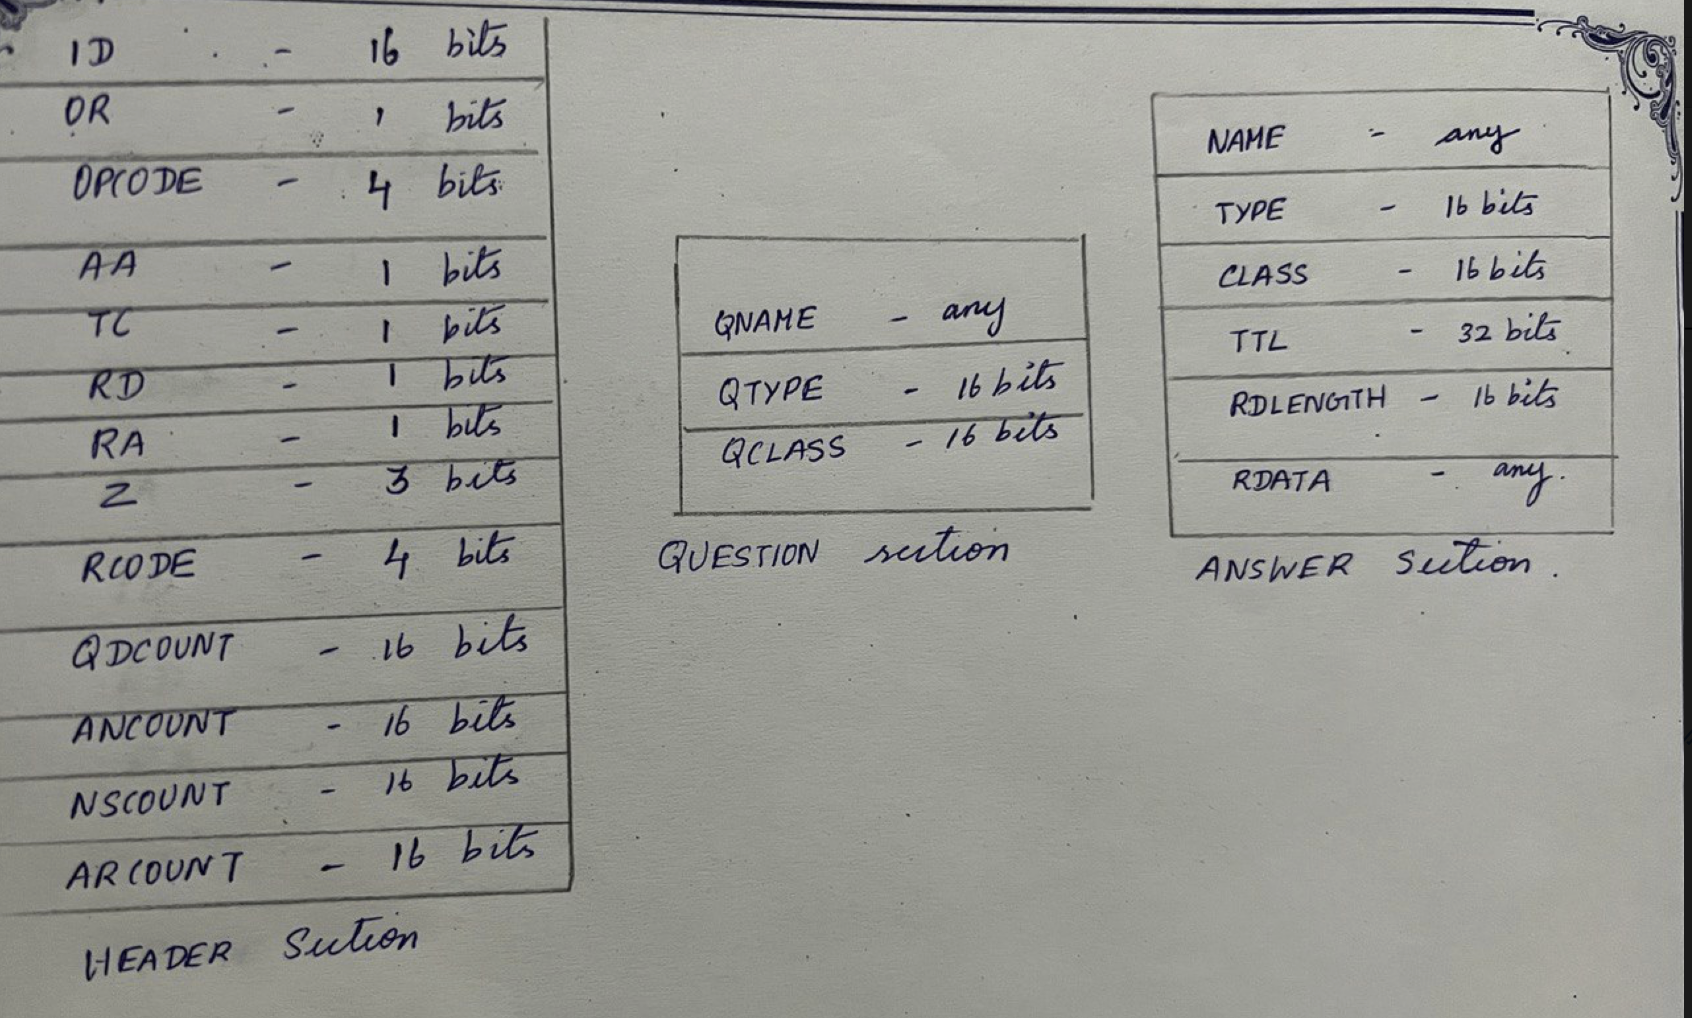 ID - 16 bits
OR - 1 bits
OPCODE - 4 bits
AA - 1 bits
TC - 1 bits
RD - 1 bits
RA - 1 bits
Z - 3 bits
RCODE - 4 bits
QDCOUNT - 16 bits
ANCOUNT - 16 bits
NSCOUNT - 16 bits
ARCOUNT - 16 bits
HEADER Section
QNAME - any
QTYPE - 16 bits
QCLASS - 16 bits
QUESTION section
NAME - any
TYPE - 16 bits
CLASS - 16 bits
TTL - 32 bits
RDLENGTH - 16 bits
RDATA - any.
ANSWER Section.